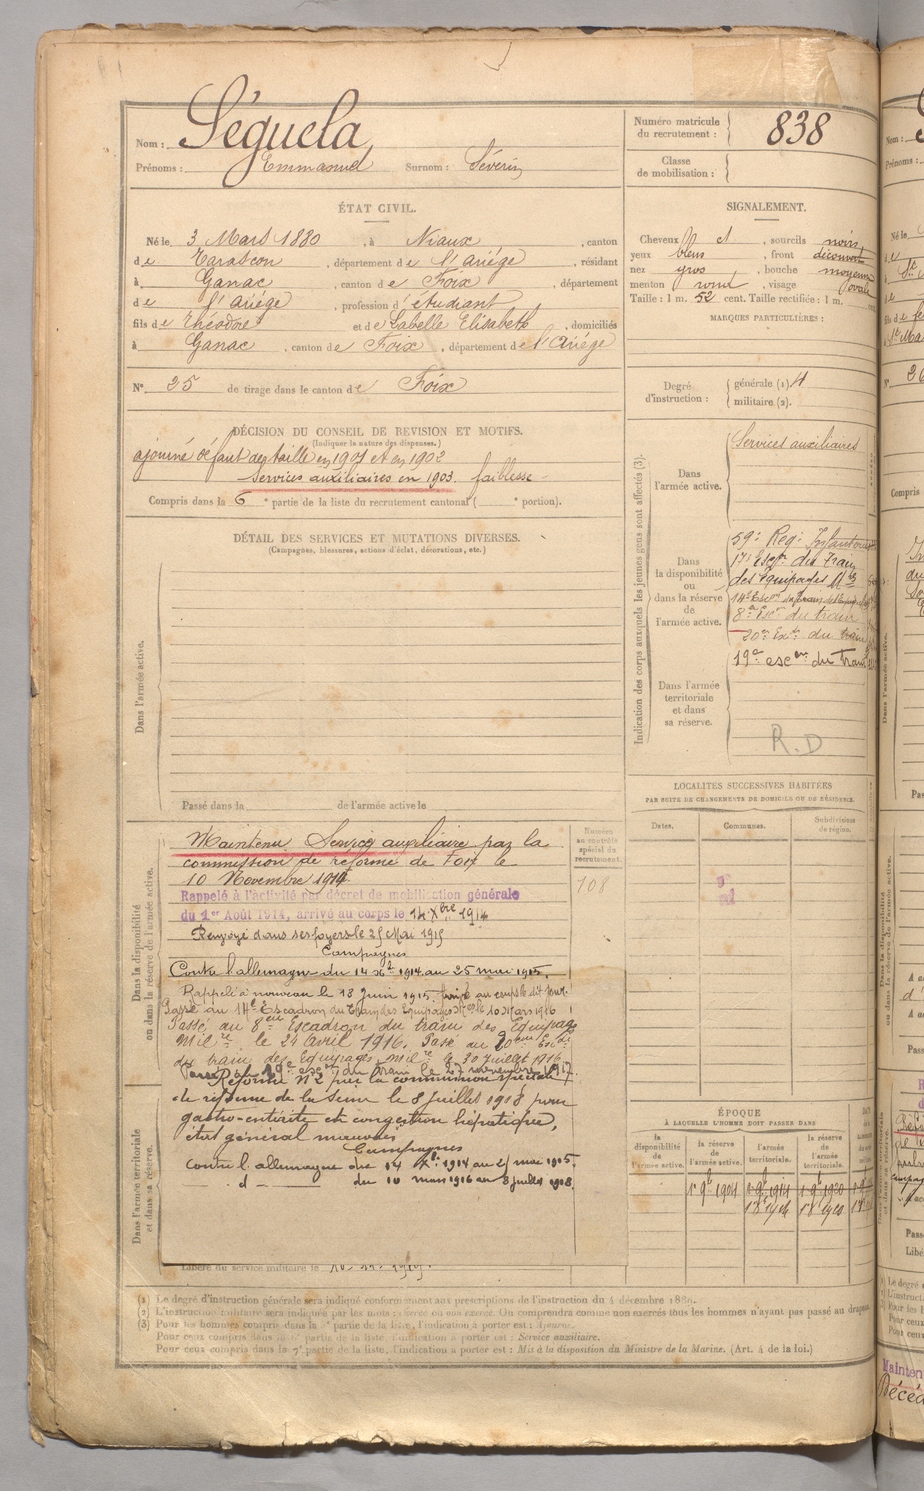 Nom : Séguela
Prénoms : Emmanuel Surnom : Séverin
Numéro matricule du recrutement : 838
Classe de mobilisation :
ÉTAT CIVIL.
Né le 3 Mars 1880, à Niaux, canton
de Tarascon, département de l'Ariége, résidant
à Ganac, canton de Foix, département
de l'Ariége, profession d'étudiant,
fils de Théodore et de Labelle Elisabeth, domiciliés
à Ganac, canton de Foix, département de l'Ariége
N° 25 de tirage dans le canton de Foix
SIGNALEMENT.
Cheveux et, sourcils noirs
yeux bleus, front découvert
nez gros, bouche moyenne
menton rond, visage ovale
Taille : 1 m. 52 cent. Taille rectifiée : 1 m.
MARQUES PARTICULIÈRES :
Degré d'instruction : générale (1) 4
militaire (2).
DÉCISION DU CONSEIL DE REVISION ET MOTIFS.
(Indiquer la nature des dispenses.)
ajourné défaut de taille en 1901 et en 1902
services auxiliaires en 1903. faiblesse
Compris dans la 6e partie de la liste du recrutement cantonal ( e portion).
DÉTAIL DES SERVICES ET MUTATIONS DIVERSES.
(Campagnes, blessures, actions d'éclat, décorations, etc.)
Indication des corps auxquels les jeunes gens sont affectés (3).
Dans l'armée active.
Services auxiliaires
Dans la disponibilité ou dans la réserve de l'armée active.
59e Reg: Infanterie
17e Esc on du Train
des Équipages Mres
14e Escon du train des Equip
8e Esc on du train
20e Esc. du train
19e esc on du train
Dans l'armée territoriale et dans sa réserve.
R.D
Dans l'armée active.
Passé dans la de l'armée active le
LOCALITÉS SUCCESSIVES HABITÉES
PAR SUITE DE CHANGEMENTS DE DOMICILE OU DE RÉSIDENCE.
Dates. Communes. Subdivisions de région.
Dans la disponibilité ou dans la réserve de l'armée active.
Numéro au contrôle spécial du recrutement.
108
Maintenu Service auxiliaire par la
commission de réforme de Foix le
10 Novembre 1914
Rappelé à l'activité par décret de mobilisation générale
du 1er Août 1914, arrivé au corps le 14 Xbre 1914
Renvoyé dans ses foyers le 25 Mai 1915
Campagnes
Contre l'allemagne du 14 Xbre 1914 au 25 mai 1915.
Rappelé à nouveau le 18 Juin 1915. Arrivé au corps le dit jour.
Passé au 14e Escadron du Train des Equipages Mres le 10 Mars 1916
Passé au 8eme Escadron du train des Equipages
Milre le 21 Avril 1916. Passé au 20eme Esc on
du train des Equipages Milre le 30 Juillet 1916
Passé au 19e esc on du train le 27 novembre 1917.
Réformé N° 2 par la commission spéciale
de réforme de la Seine le 8 Juillet 1918 pour
gastro-entérite et congestion hépatique,
état général mauvais
Campagnes
Contre l'allemagne du 14 Xbre 1914 au 25 mai 1915.
d du 10 mars 1916 au 8 juillet 1918
Dans l'armée territoriale et dans sa réserve.
Libéré du service militaire le
ÉPOQUE
À LAQUELLE L'HOMME DOIT PASSER DANS
la disponibilité de l'armée active. la réserve de l'armée active. l'armée territoriale. la réserve de l'armée territoriale.
1er 9bre 1904 1er 9bre 1914 1er 9bre 1920
(1) Le degré d'instruction générale sera indiqué conformément aux prescriptions de l'instruction du 4 décembre 1889.
(2) L'instruction militaire sera indiquée par les mots : exercé ou non exercé. On comprendra comme non exercés tous les hommes n'ayant pas passé au drapeau.
(3) Pour les hommes compris dans la partie de la liste, l'indication à porter est : Ajourné.
Pour ceux compris dans la partie de la liste, l'indication à porter est : Service auxiliaire.
Pour ceux compris dans la 7e partie de la liste, l'indication à porter est : Mis à la disposition du Ministre de la Marine. (Art. 4 de la loi.)